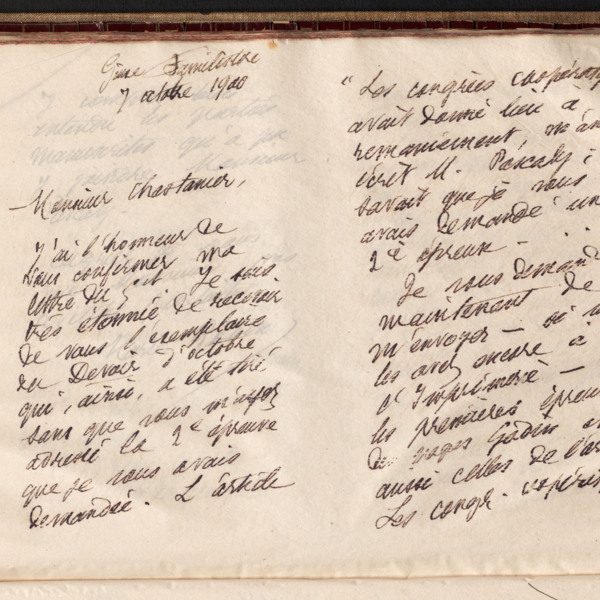 Guise Familistère
7 octobre 1900
Monsieur Chastanier,
J'ai l'honneur de
vous confirmer ma
lettre du 5 . . Je suis
très étonnée de recevoir
de vous l'exemplaire
du Devoir d'octobre
qui, ainsi, a été tiré
sans que vous m'ayez
adressé la 2e épreuve
que je vous avais
demandée. L'article
"Les congrès coopérat
avait donné lieu à
remaniement, m'a
écrit M. Pascaly ;
savait que je vous
avais demandé un
2e épreuve - . .
Je vous demand
maintenant de
m'envoyer - si v
les avez encore à
l'Imprimerie -
les premières épreu
des pages Godin
aussi celles de l'ar
Les congr. coopéra